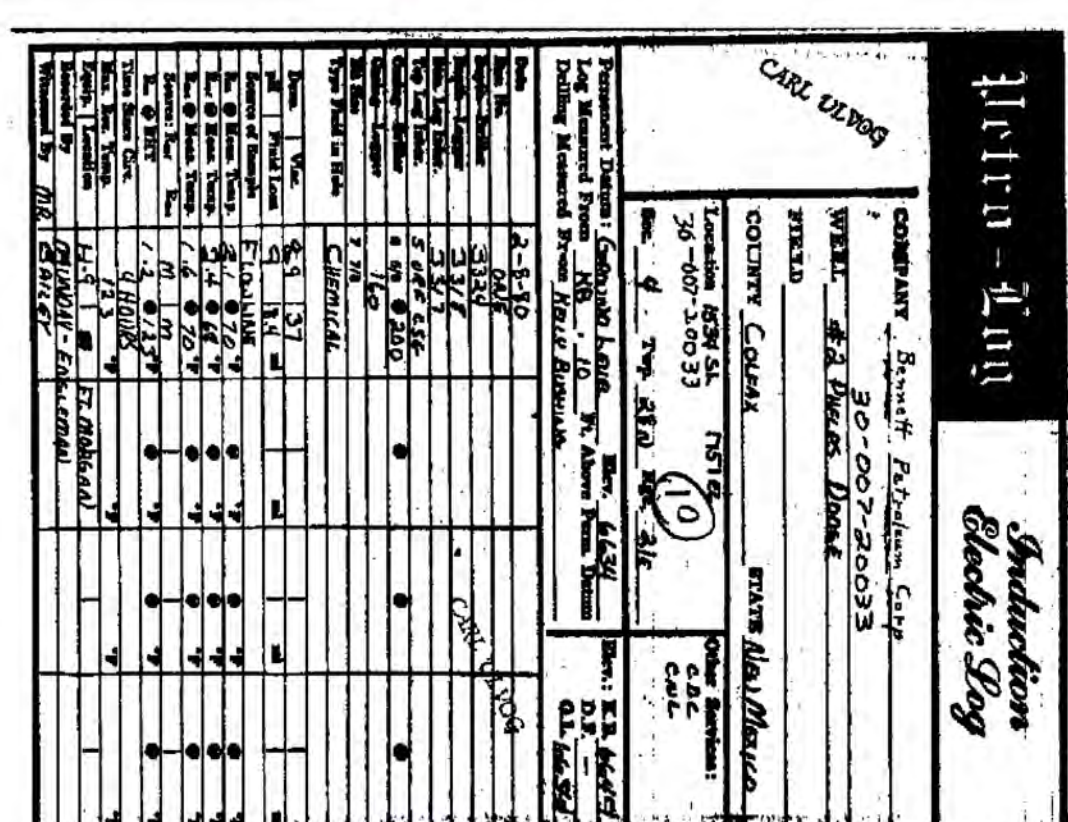 Petro-Log
Induction
Electric Log
COMPANY Bennett Petroleum Corp
30-007-20033
WELL #2 PHELPS DODGE
FIELD
COUNTY COLFAX STATE New Mexico
CARL ULVOG
Location 1834 SL
30-007-20033
10
Sec 4 Twp 28N Rge
Other Services:
C.D.C
C.N.L
Permanent Datum: GROUND LEVEL Elev. 6634
Log Measured From KB, 10 Ft. Above Perm. Datum
Drilling Measured From KELLY BUSHING
Elev.: K.B.
D.F. —
G.L.
Date 2-8-80
Run No. ONE
Depth—Driller 3324
Depth—Logger 3318
Btm. Log Inter. 3317
Top Log Inter. SURF CSG
Casing—Driller 8 5/8 @ 200
Casing—Logger 160
Bit Size 7 7/8
Type Fluid in Hole CHEMICAL
Dens. Visc. 8.9 37
pH Fluid Loss 9 8.4 ml
Source of Sample FLOWLINE
Rm @ Meas. Temp. 3.1 @ 70 °F
Rmf @ Meas. Temp. @ 68 °F
Rmc @ Meas. Temp. 1.6 @ 70 °F
Source: Rmf Rmc M M
Rm @ BHT 1.2 @ 123 °F
Time Since Circ. 4 HOURS
Max. Rec. Temp. 123 °F
Equip. Location FT. MORGAN
Recorded By MUNDAY - ENGLEMAN
Witnessed By MR. BAILEY
CARL ULVOG